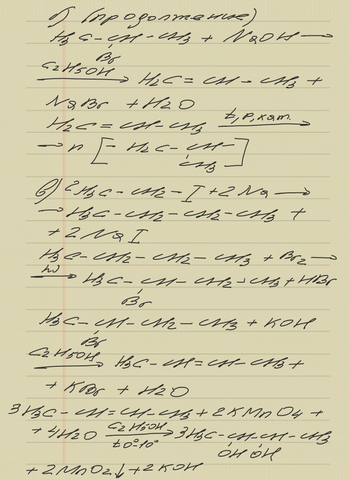 б) (продолжение)
H₃C – CH – CH₃ + NaOH →
Br
C₂H₅OH H₂C = CH – CH₃ +
NaBr + H₂O
H₂C = CH – CH₃ t, p, кат.
→ n [– H₂C – CH –]
CH₃
в) 2H₃C – CH₂ – I + 2Na →
→ H₃C – CH₂ – CH₂ – CH₃ +
+ 2NaI
H₃C – CH₂ – CH₂ – CH₃ + Br₂ →
hν → H₃C – CH – CH₂ – CH₃ + HBr
Br
H₃C – CH – CH₂ – CH₃ + KOH
Br
C₂H₅OH → H₃C – CH = CH – CH₃ +
+ KBr + H₂O
3H₃C – CH = CH – CH₃ + 2KMnO₄ +
+ 4H₂O C₂H₅OH → 3H₃C – CH – CH – CH₃
t 0°-10° OH OH
+ 2MnO₂↓ + 2KOH